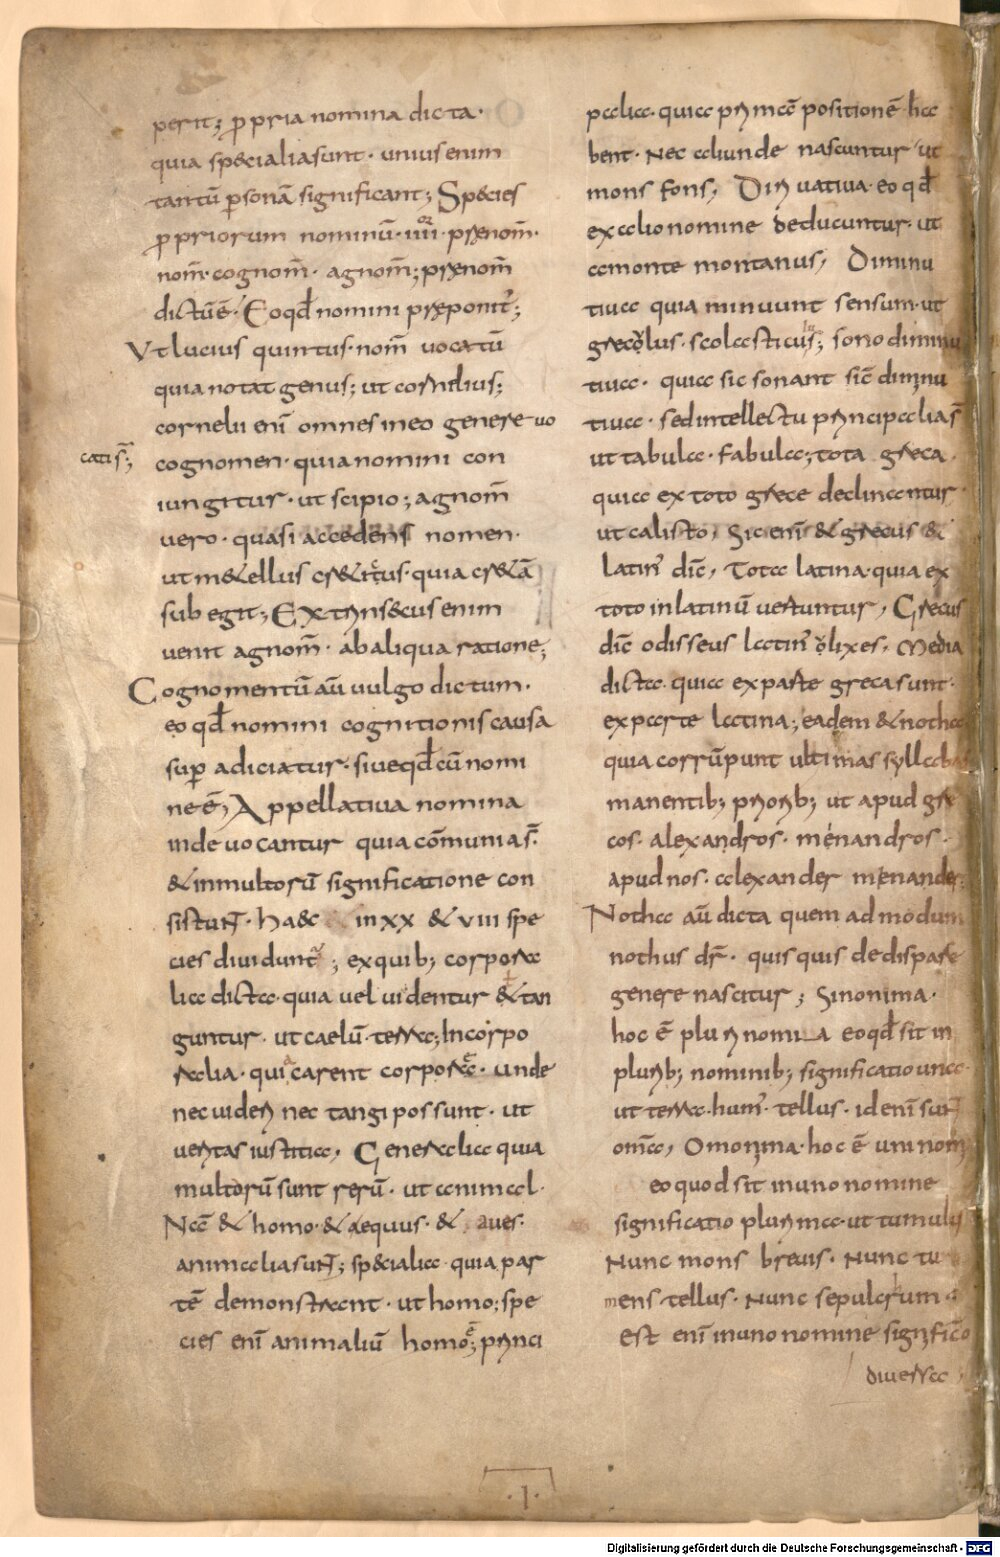 perit; ꝓpria nomina dicta·
quia specialia sunt· unius enim
tantū ꝑsonā significant; Species
ꝓpriorum nominū· iiii or· prenom̄·
nom̄· cognom̄· agnom̄; prenom̄
dictū ē· Eo qđ nomini preponit̄;
Vt lucius quintus· nom̄ uocatū
quia notat genus; ut cornelius;
cornelii enī omnes in eo genere uo
catis̄; cognomen· quia nomini con
iungitur· ut scipio; agnom̄
uero· quasi accedens nomen·
ut m&ellus cr&icus· quia cr&ā
subegit; Extrinsecus enim
uenit agnom̄· ab aliqua ratione;
Cognomentū aū uulgo dictum·
eo qđ nomini cognitionis causa
suꝑadiciatur· siue qđ cū nomi
ne ē; Appellatiua nomina
inde uocantur quia cōmunia s̄·
& in multorū significatione con
sistunt· haec in xx & viii spe
cies diuidunt; ex quib; corpora
lia dicta· quia uel uidentur & tan
guntur· ut caelū· terra; Incorpo
ralia· quia carent corpore· unde
nec uideri nec tangi possunt· ut
ueritas iustitia, Generalia quia
multorū sunt rerū· ut animal·
Nā & homo· & aequus· & aues·
animalia sunt; specialia· quia par
tē demonstrant· ut homo; spe
cies enī animaliū homo ē; princi
palia· quia primā positionē ha
bent· Nec aliunde nascuntur ut
mons fons; Diriuatiua· eo qđ
ex alio nomine deducuntur· ut
a monte montanus, Diminu
tiua quia minuunt sensum· ut
grecolus· scolasticulus; sono diminu
tiua· quia sic sonant sic̄ diminu
tiua· sed intellectu principalia s̄
ut tabula· fabula; tota greca·
quia ex toto grece declinantur
ut calisto, Sic enī & grecus &
latin' dic̄, Tota latina· quia ex
toto in latinū uertuntur, Grecus
dic̄ odisseus latin' olixes, Media
dicta· quia ex parte greca sunt·
ex parte latina; eadem & notha
quia corrūpunt ultimas syllabas
manentib; priorib; ut apud gre
cos· alexandros· menandros·
apud nos· alexander menander·
Notha aū dicta quem ad modum
nothus dr̄· quisquis de dispare
genere nascitur; Sinonima·
hoc ē plurinomia eo qđ sit in
plurib; nominib; significatio una·
ut terra· hum'· tellus· id enī sunt
om̄a, Omonima· hoc ē uninom̄
eo quod sit in uno nomine
significatio plurima· ut tumulus
Nunc mons breuis· Nunc tu
mens tellus· Nunc sepulchrum·
est enī in uno nomine significatio
diuersa,
·1·
Digitalisierung gefördert durch die Deutsche Forschungsgemeinschaft · DFG